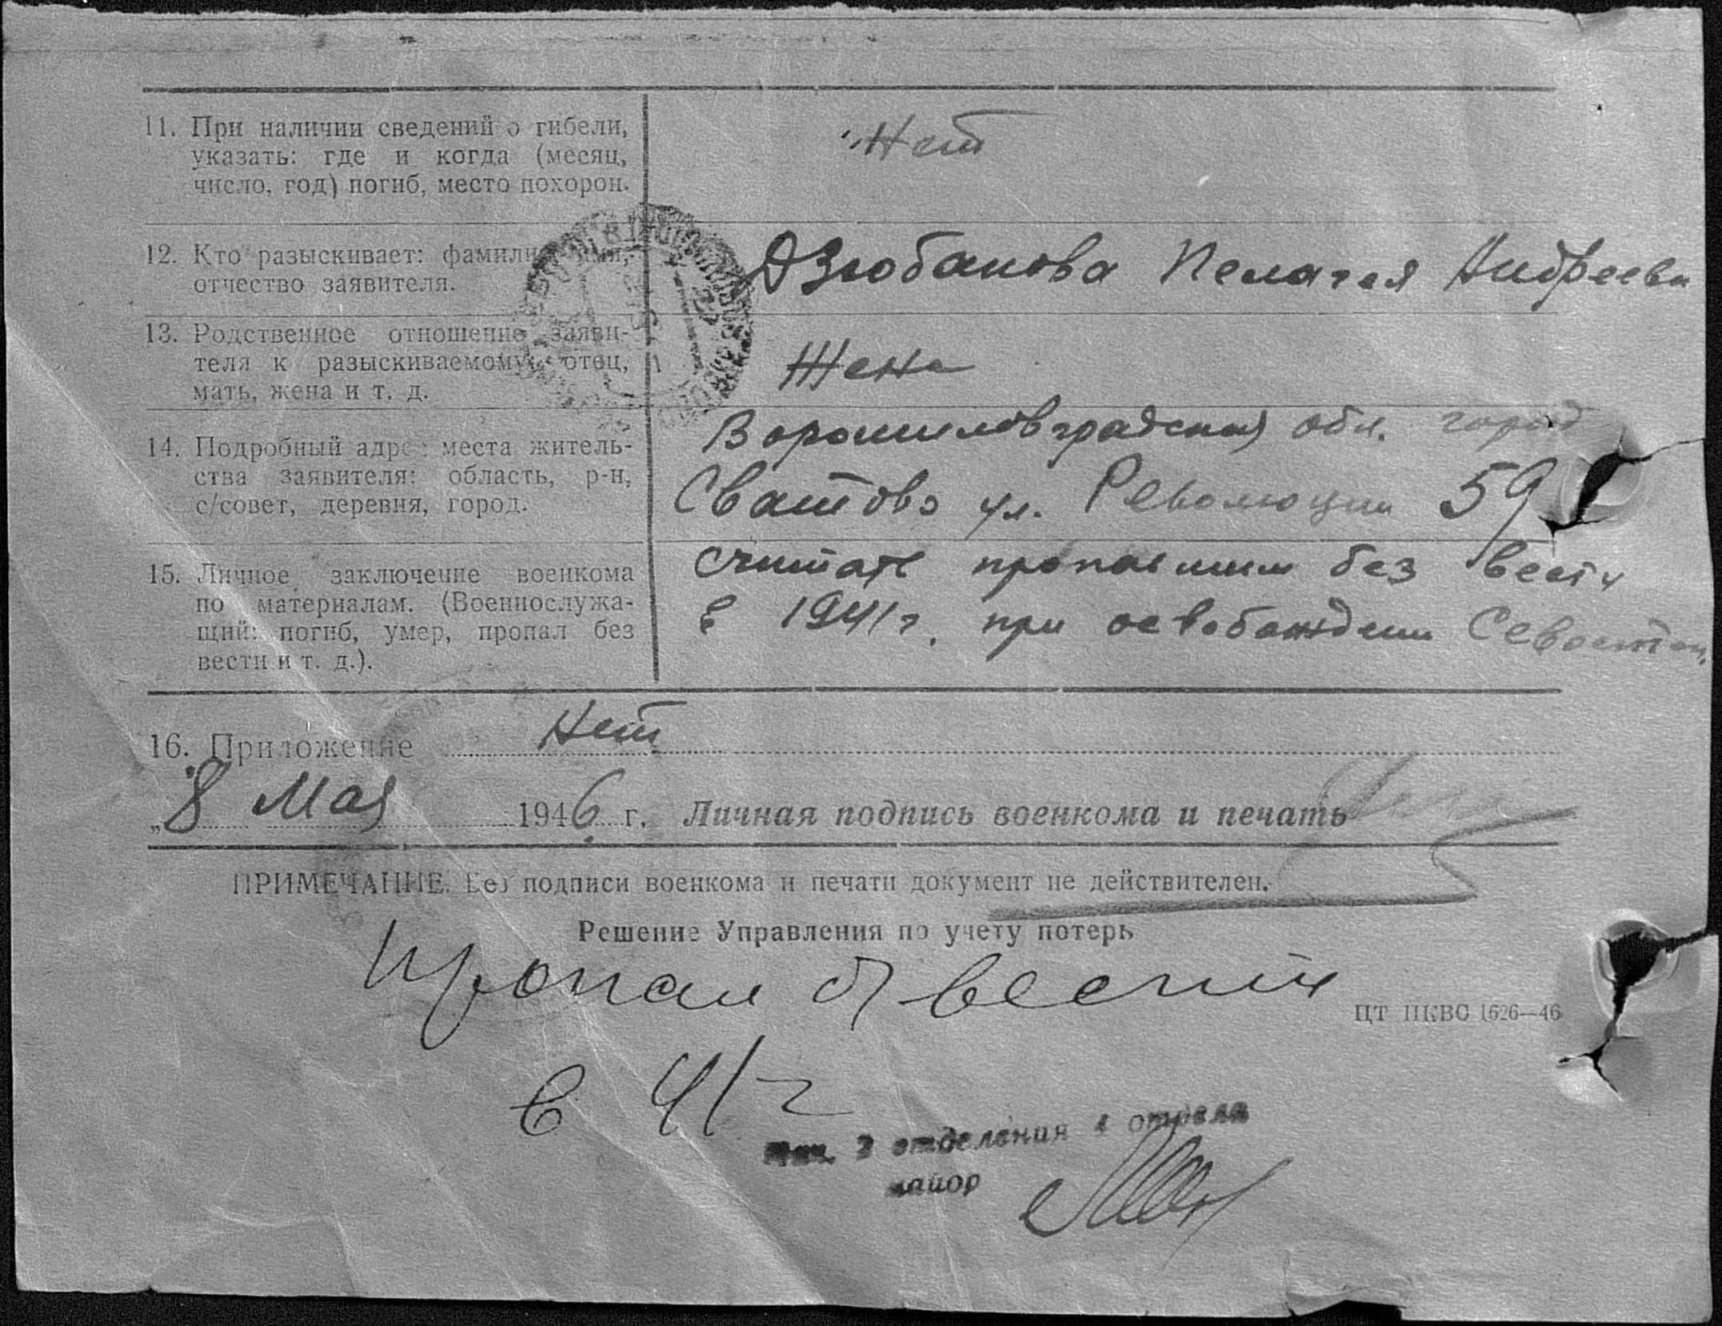 11. При наличии сведений о гибели,
указать: где и когда (месяц,
число, год) погиб, место похорон.
Нет
12. Кто разыскивает: фамилия, имя,
отчество заявителя.
Дзюбанова Пелагея Андреевн
13. Родственное отношение заяви-
теля к разыскиваемому: отец,
мать, жена и т. д.
Жена
14. Подробный адрес места житель-
ства заявителя: область, р-н,
с/совет, деревня, город.
Ворошиловградская обл. город
Сватово ул. Революции 59
15. Личное заключение военкома
по материалам. (Военнослужа-
щий: погиб, умер, пропал без
вести и т. д.).
считать пропавшим без вести
в 1941 г. при освобождении
16. Приложение Нет
„8 Мая 1946 г. Личная подпись военкома и печать
ПРИМЕЧАНИЕ. Без подписи военкома и печати документ не действителен.
Решение Управления по учету потерь
Пропал б/вести
ЦТ НКВС 1626—46
в 41 г
Нач. 2 отделения 4 отдела
майор